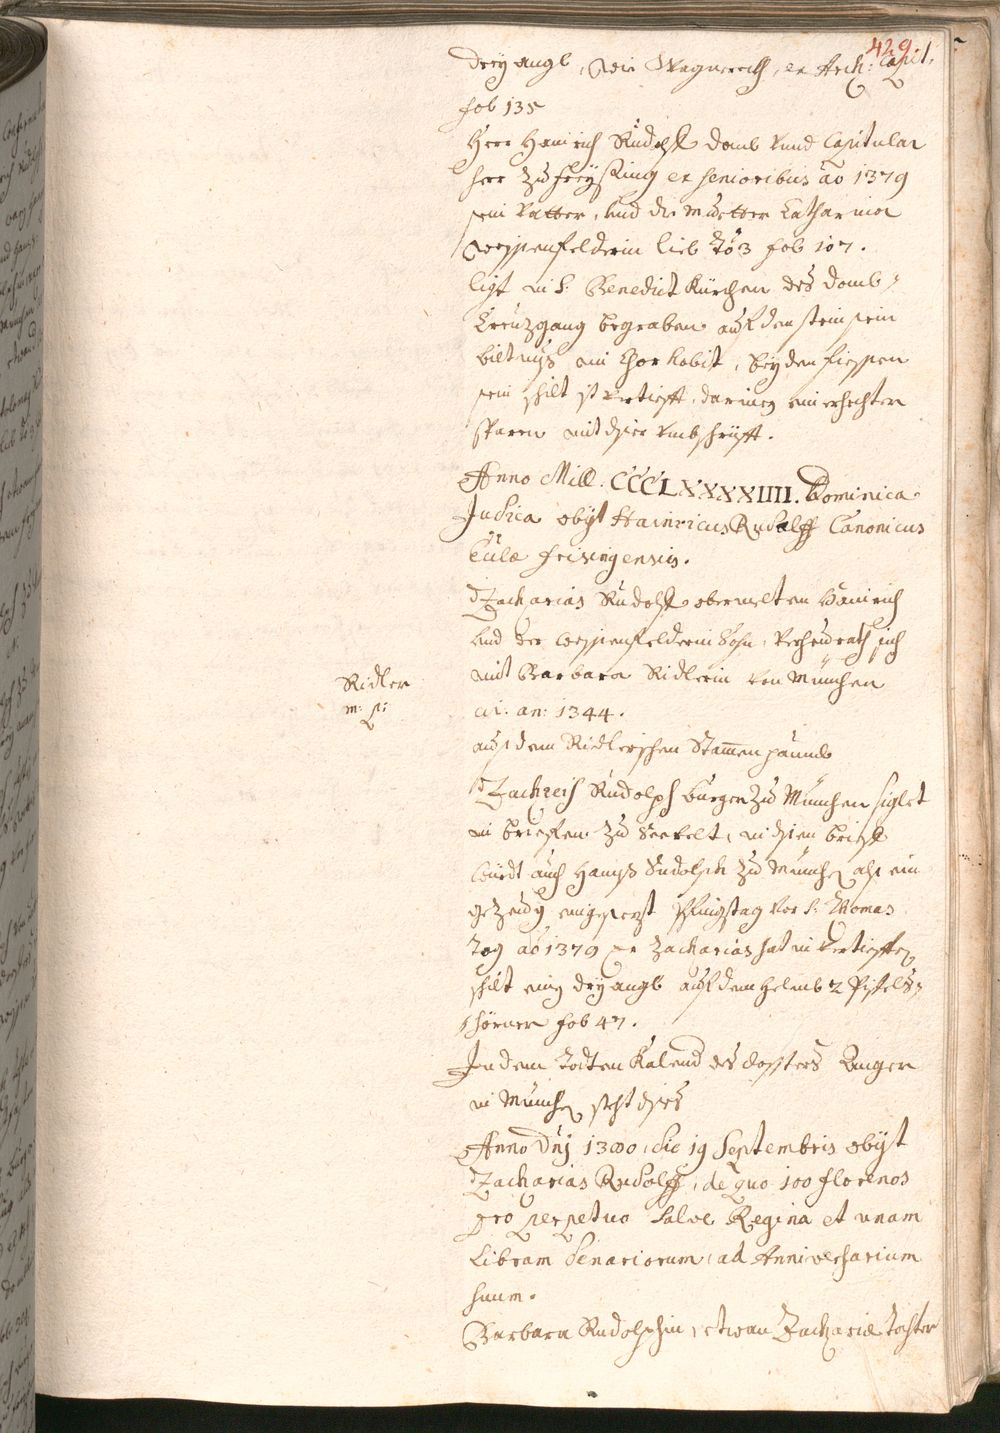 429
dreyangl, Wie Wagnereckh, ex Arch: Capit.
fol 135
Herr Hainrich Rudolff domb vnnd Capitular
herr Zu Freysing ex senioribus ao 1379
sein Vatter, vnd die Muetter Catharina
Weyssenfelderin lieb fol 107.
ligt in S: Benedict Kürchen des domb
Creuzgang begraben auf den stein sein
biltnus im Chor habit, bey den fiessen
sein schilt ist vertiefft, darineg ein erhechter
sparen mit diser vmbschrüfft.
Anno Mill. CCCLXXXXIIII. Dominica
Judica obijt Hainricus Rudolff Canonicus
Eccle Frisingensis.
Zacharias Rudolff obermelten Hainrich
vnd der Weyssenfelderin Sohn, Verheurath sich
mit Barbara Ridlerin von München
an: 1344.
auß dem Ridlerischen Stammen paumb
Ridler
m: p:
Zachreiß Rudolph burger Zu München siglet
in brieffen Zu Seefelt, in disen brieff
würdt auch Hannß Rudolph Zu Münch als ein
geZeug eingesezt Pfingstag vor S: Thomas
Tag ao 1379 er Zacharias hat in vertiefften
schilt ein dreyangl auf dem helmb 2 Pifels
hörner fol 47.
In dem Todten Kalend des Closters Anger
in Münch steht dises
Anno Dnj 1380, die 19 Septembris obijt
Zacharias Rudolff, de quo 100 florenos
pro perpetuo Salve Regina et unam
Libram denariorum, ad Anniversarium
suum.
Barbara Rudolphin, etwan Zachariæ Tochter